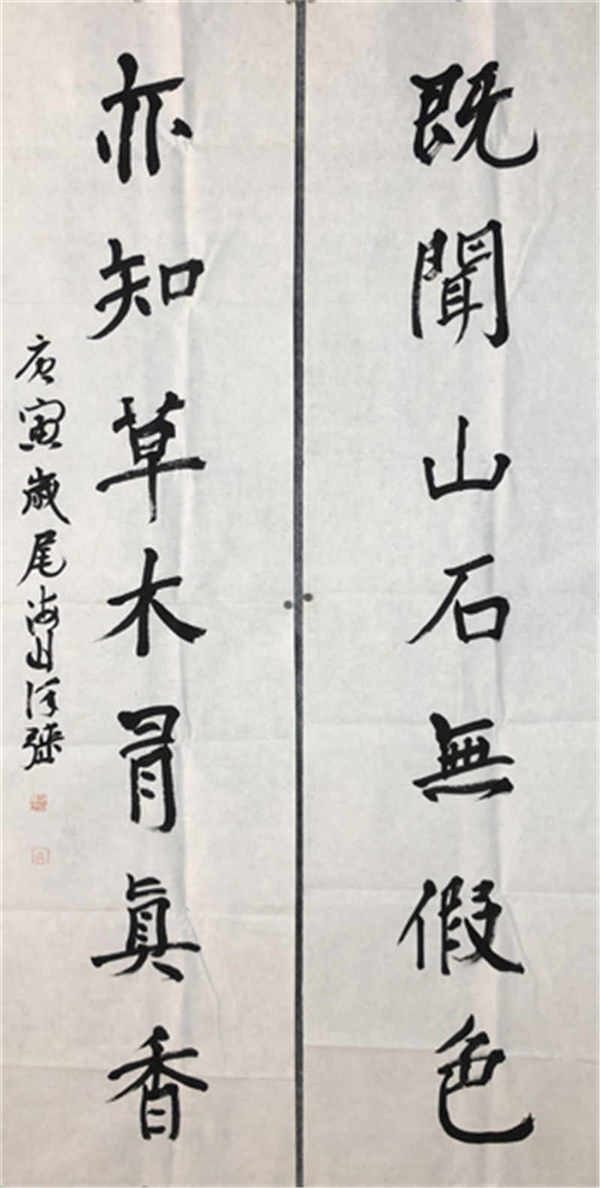 既聞山石無假色
亦知草木冐眞香
庚寅歲尾海山